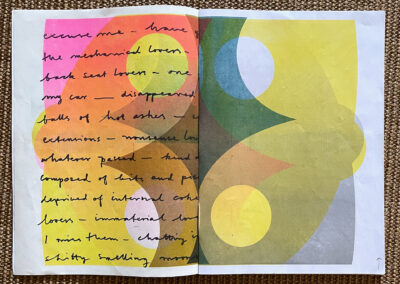 excuse me – have
the mechanical lovers –
back seat lovers – one
my car — disappeared
balls of hot ashes –
extensions – nonsense
whatever passed –
composed of bits and
deprived of internal
lovers – immaterial
I miss them – chatting
chitty